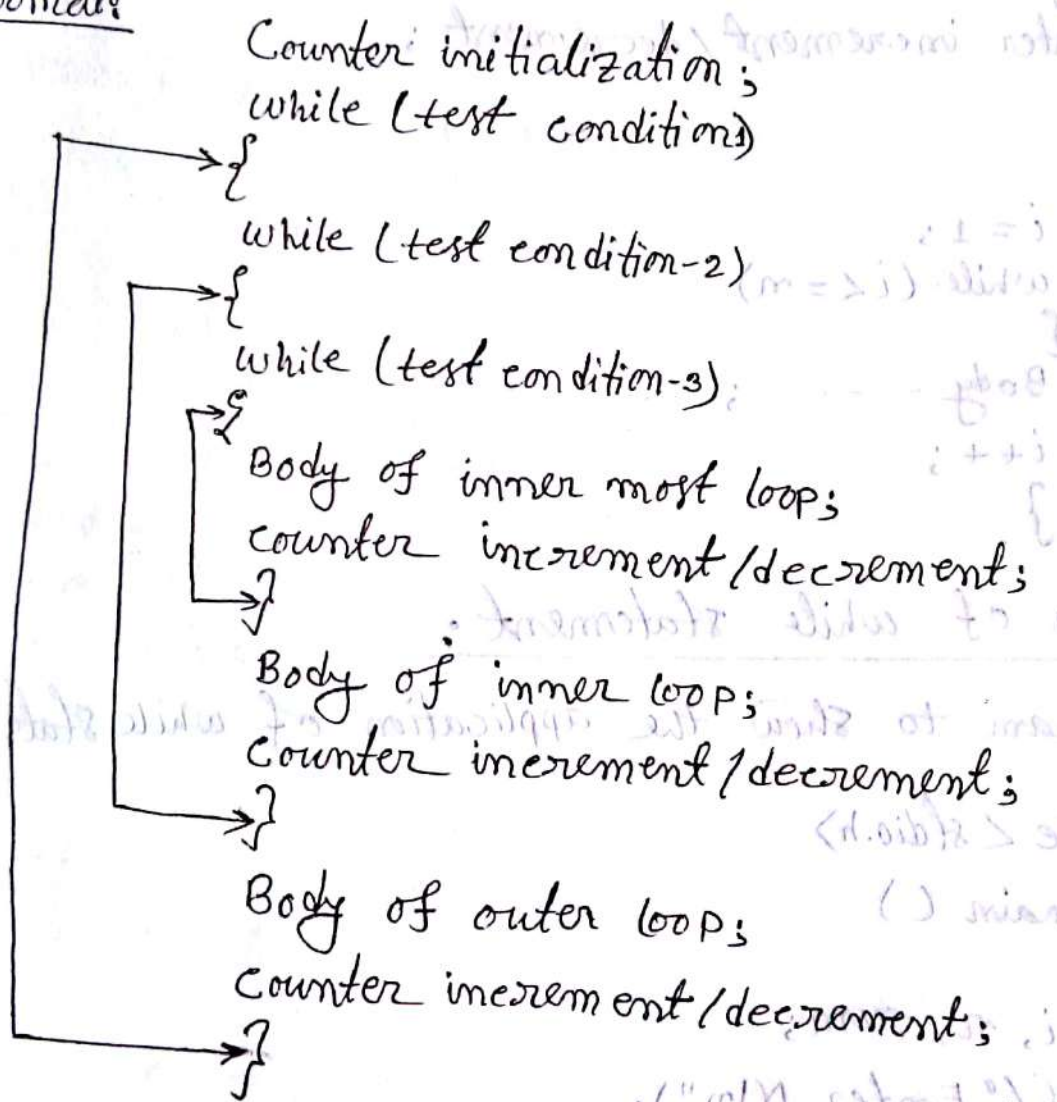 Counter initialization;
while (test condition1)
{
while (test condition-2)
{
while (test condition-3)
{
Body of inner most loop;
counter increment/decrement;
}
Body of inner loop;
Counter increment/decrement;
}
Body of outer loop;
Counter increment/decrement;
}